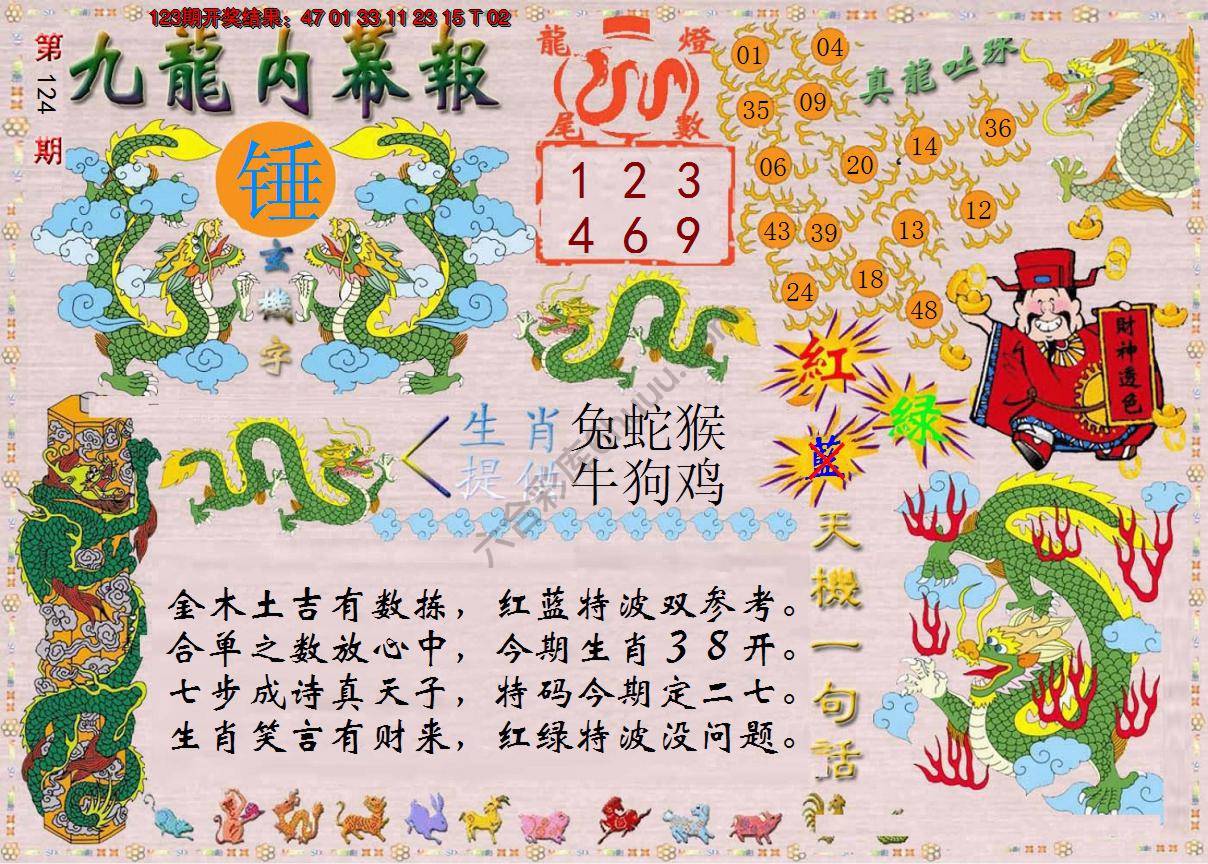 123期开奖结果：47 01 33 11 23 15 T 02
第124期
九龍内幕報
龍燈尾數
真龍吐珠
01 04
35 09
14 36
06 20
43 39 13 12
24 18 48
锤
玄機字
1 2 3
4 6 9
財神透色
紅
綠
藍
生肖 兔蛇猴
提供 牛狗鸡
天機一句話
金木土吉有数拣，红蓝特波双参考。
合单之数放心中，今期生肖38开。
七步成诗真天子，特码今期定二七。
生肖笑言有财来，红绿特波没问题。